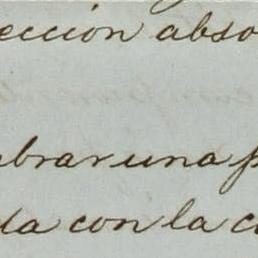 ección abso
brar una p
da con la c